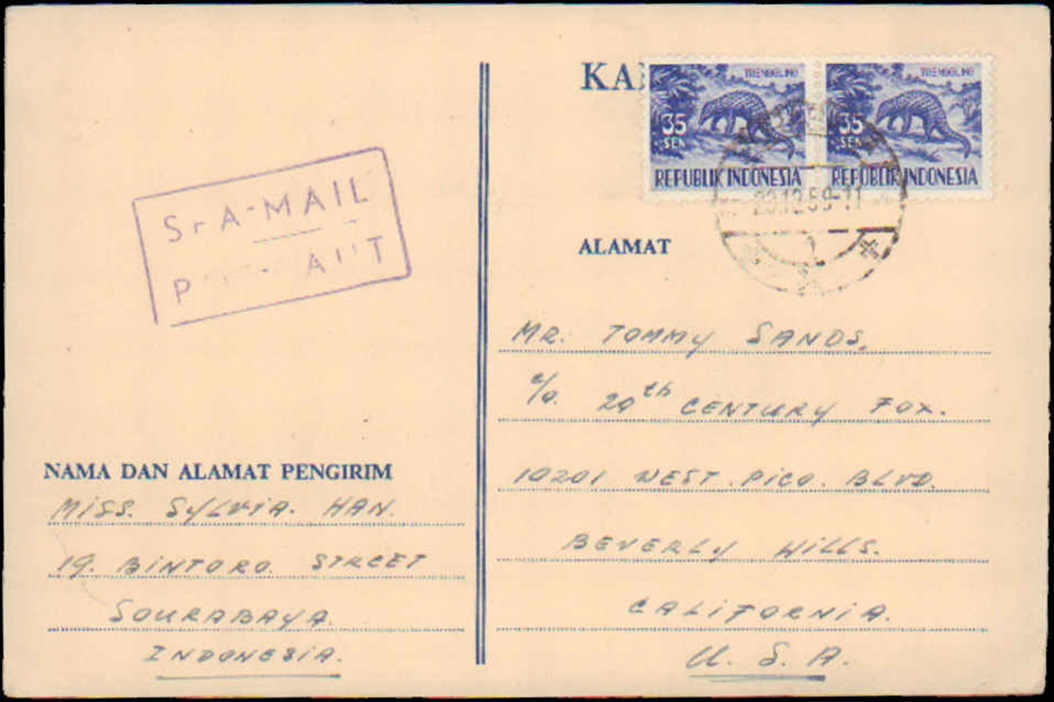 KA
TRENGGILING TRENGGILING
35 SEN 35 SEN
REPUBLIK INDONESIA REPUBLIK INDONESIA
23.12.59-11
1
SrA-MAIL
ALAMAT
MR. TOMMY SANDS.
c/o. 20th CENTURY FOX.
10201 WEST. PICO. BLVD.
BEVERLY HILLS.
CALIFORNIA.
U. S. A.
NAMA DAN ALAMAT PENGIRIM
MISS. SYLVIA. HAN.
19. BINTORO. STREET
SOURABAYA.
INDONESIA.